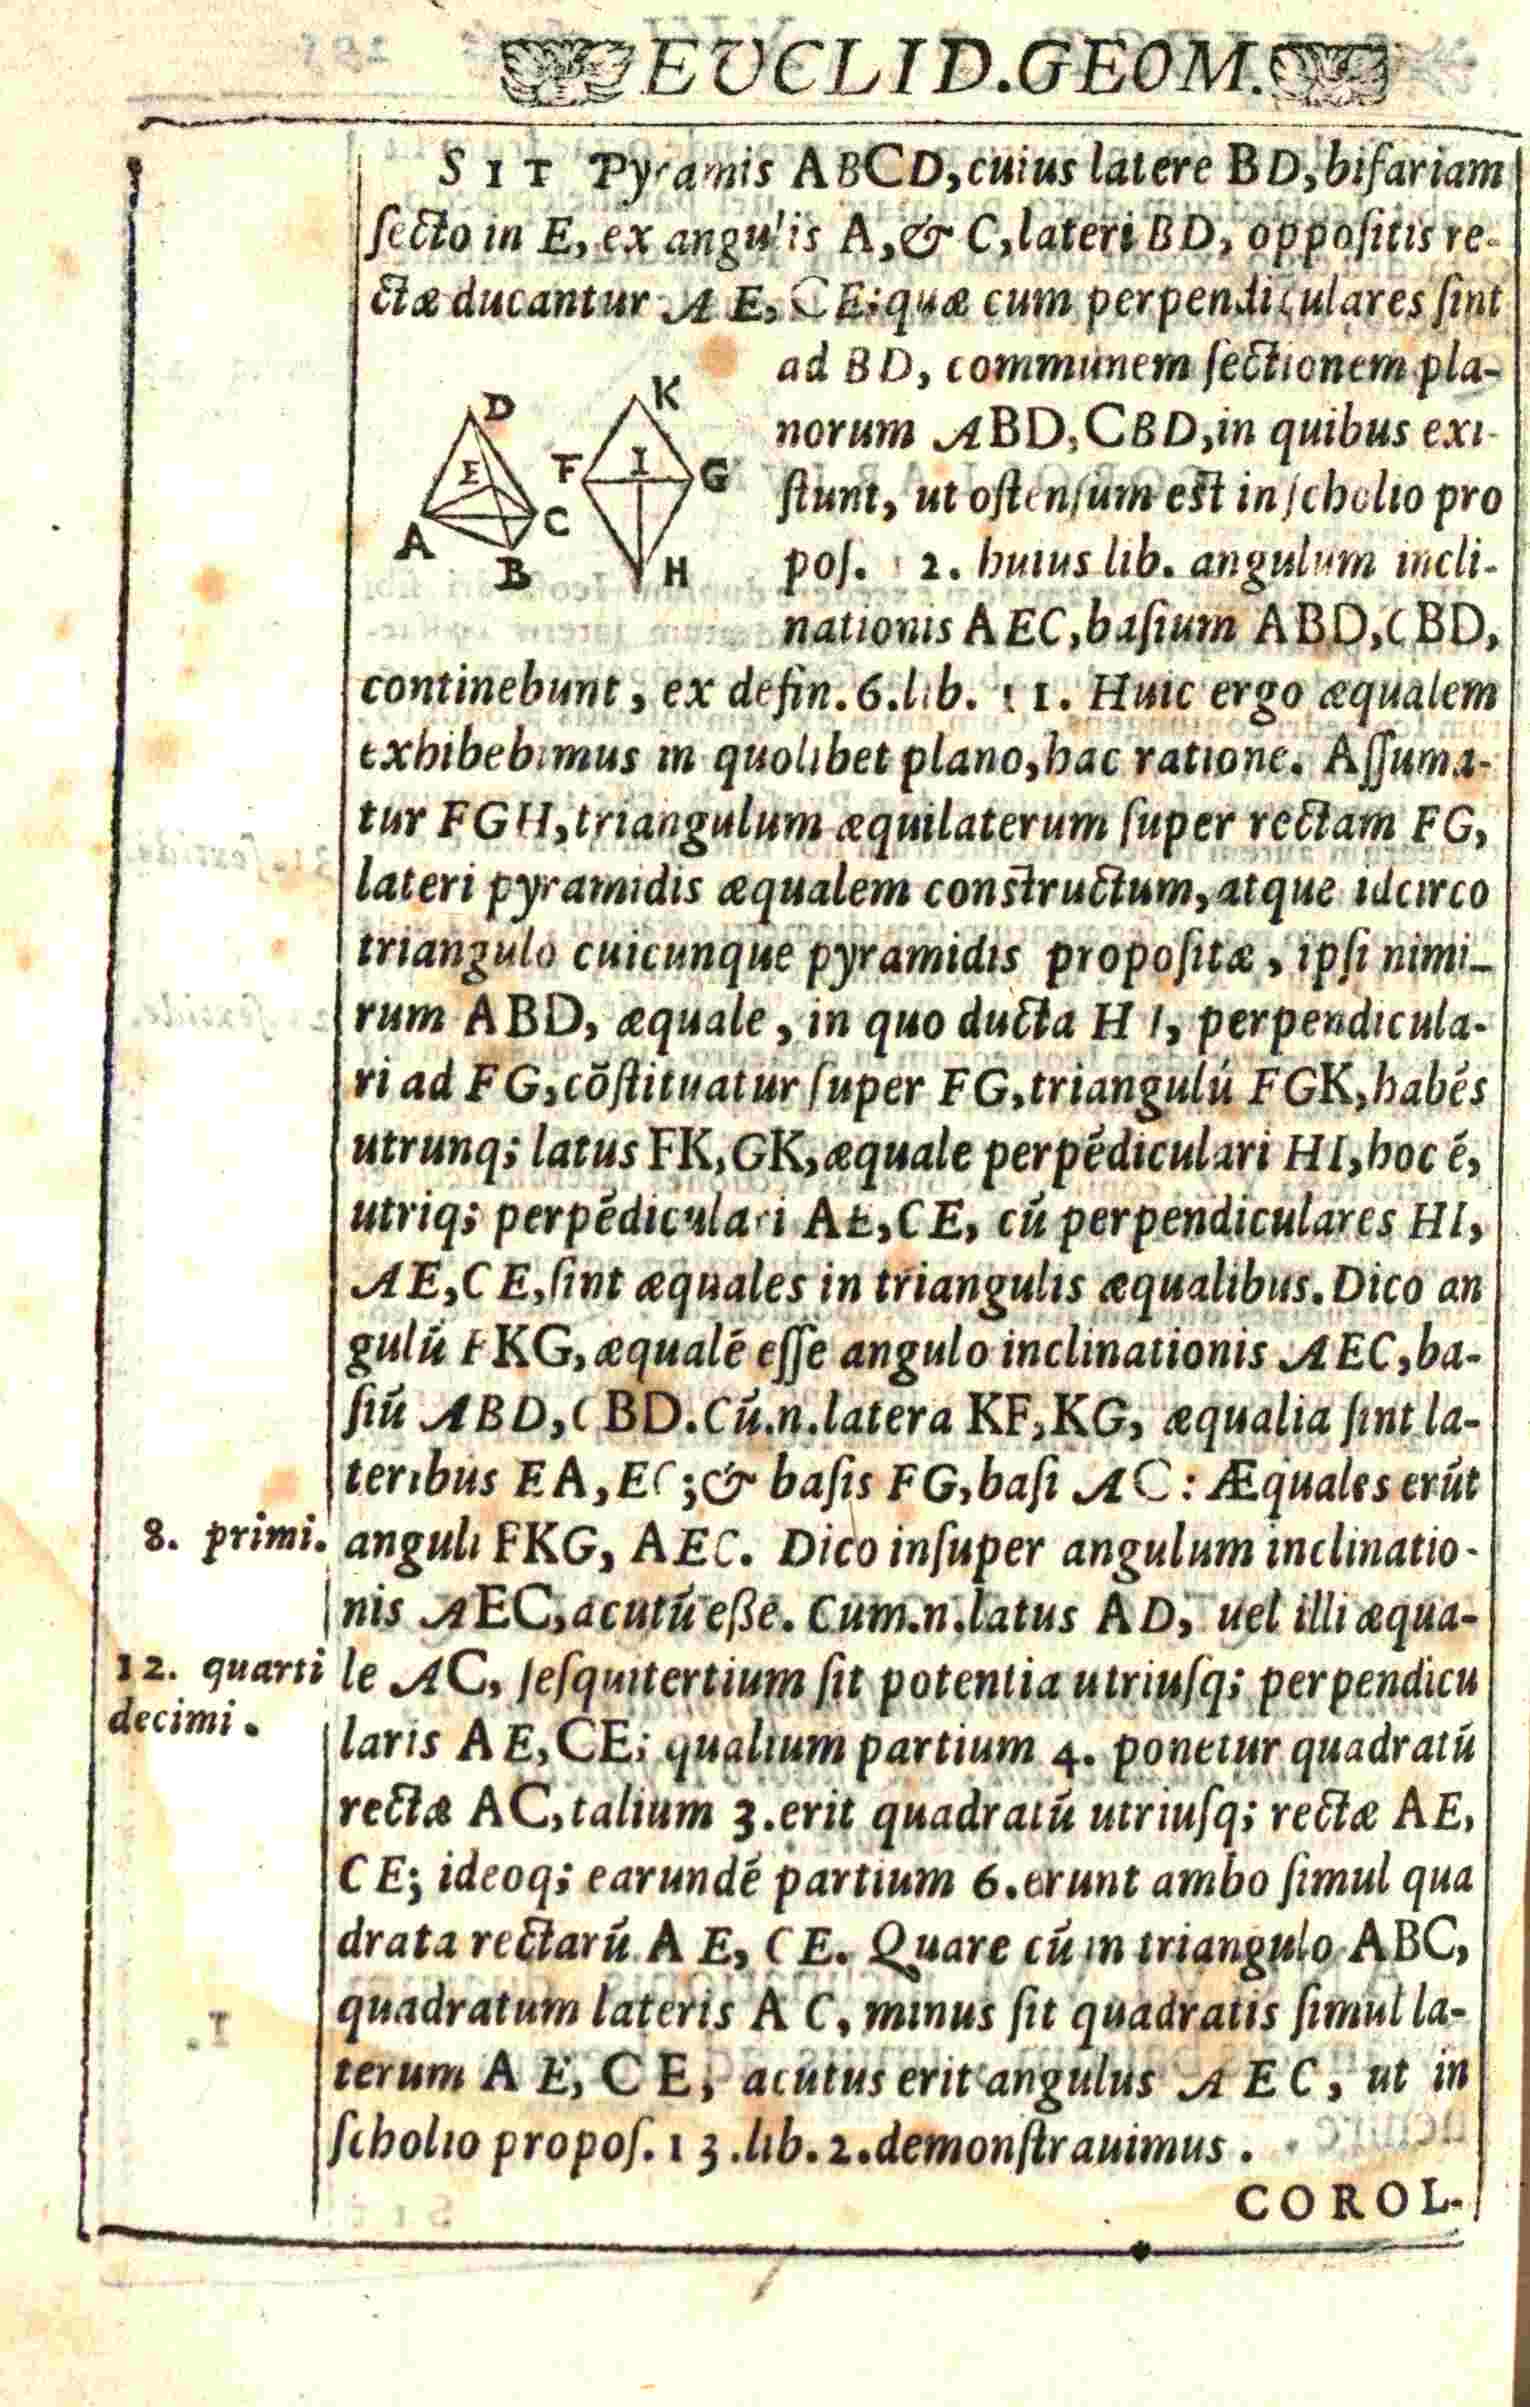 EUCLID.GEOM.
SIT Pyramis ABCD, cuius latere BD, bifariam
ſecto in E, ex angulis A, & C, lateri BD, oppoſitis re-
ctæ ducantur AE, CE; quæ cum perpendiculares ſint
ad BD, communem ſectionem pla-
norum ABD, CBD, in quibus exi-
ſtunt, ut oſtenſum eſt in ſcholio pro
poſ. 12. huius lib. angulum incli-
nationis AEC, baſium ABD, CBD,
D
K
E
F
I
G
A
C
B
H
continebunt, ex defin. 6. lib. 11. Huic ergo æqualem
exhibebimus in quolibet plano, hac ratione. Aſſuma-
tur FGH, triangulum æquilaterum ſuper rectam FG,
lateri pyramidis æqualem conſtructum, atque idcirco
triangulo cuicunque pyramidis propoſitæ, ipſi nimi-
rum ABD, æquale, in quo ducta HI, perpendicula-
ri ad FG, cõſtituatur ſuper FG, triangulũ FGK, habẽs
utrunq; latus FK, GK, æquale perpẽdiculari HI, hoc ẽ,
utriq; perpẽdiculari AE, CE, cũ perpendiculares HI,
AE, CE, ſint æquales in triangulis æqualibus. Dico an
gulũ FKG, æqualẽ eſſe angulo inclinationis AEC, ba-
ſiũ ABD, CBD. Cũ.n. latera KF, KG, æqualia ſint la-
teribus EA, EC; & baſis FG, baſi AC: Æquales erũt
8. primi.
anguli FKG, AEC. Dico inſuper angulum inclinatio-
nis AEC, acutũ eße. Cum.n. latus AD, uel illi æqua-
12. quarti
decimi.
le AC, ſeſquitertium ſit potentia utriuſq; perpendicu
laris AE, CE; qualium partium 4. ponetur quadratũ
rectæ AC, talium 3. erit quadratũ utriuſq; rectæ AE,
CE; ideoq; earundẽ partium 6. erunt ambo ſimul qua
drata rectarũ AE, CE. Quare cũ in triangulo ABC,
quadratum lateris AC, minus ſit quadratis ſimul la-
terum AE, CE, acutus erit angulus AEC, ut in
ſcholio propoſ. 13. lib. 2. demonſtrauimus.
COROL-